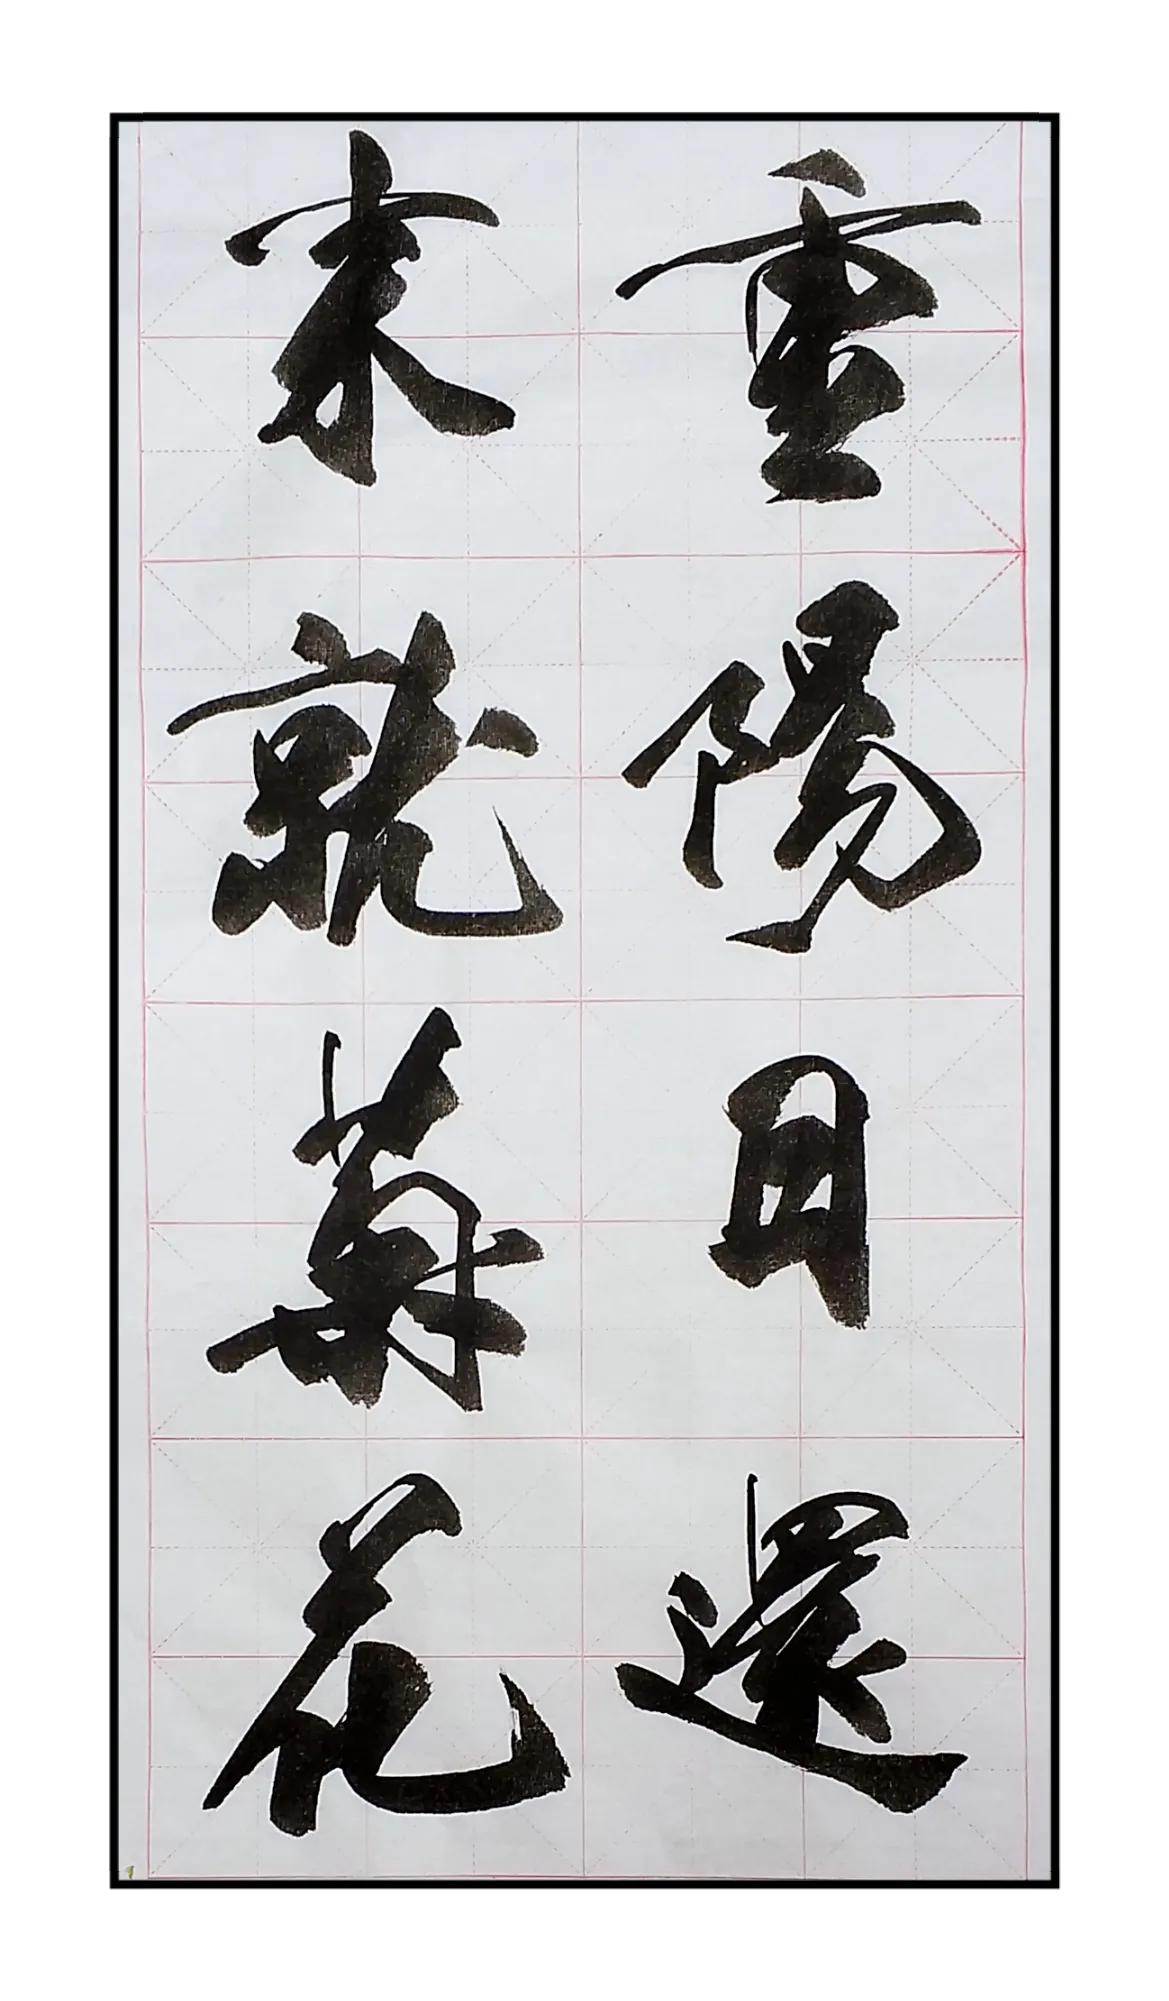 重陽日還
來就菊花